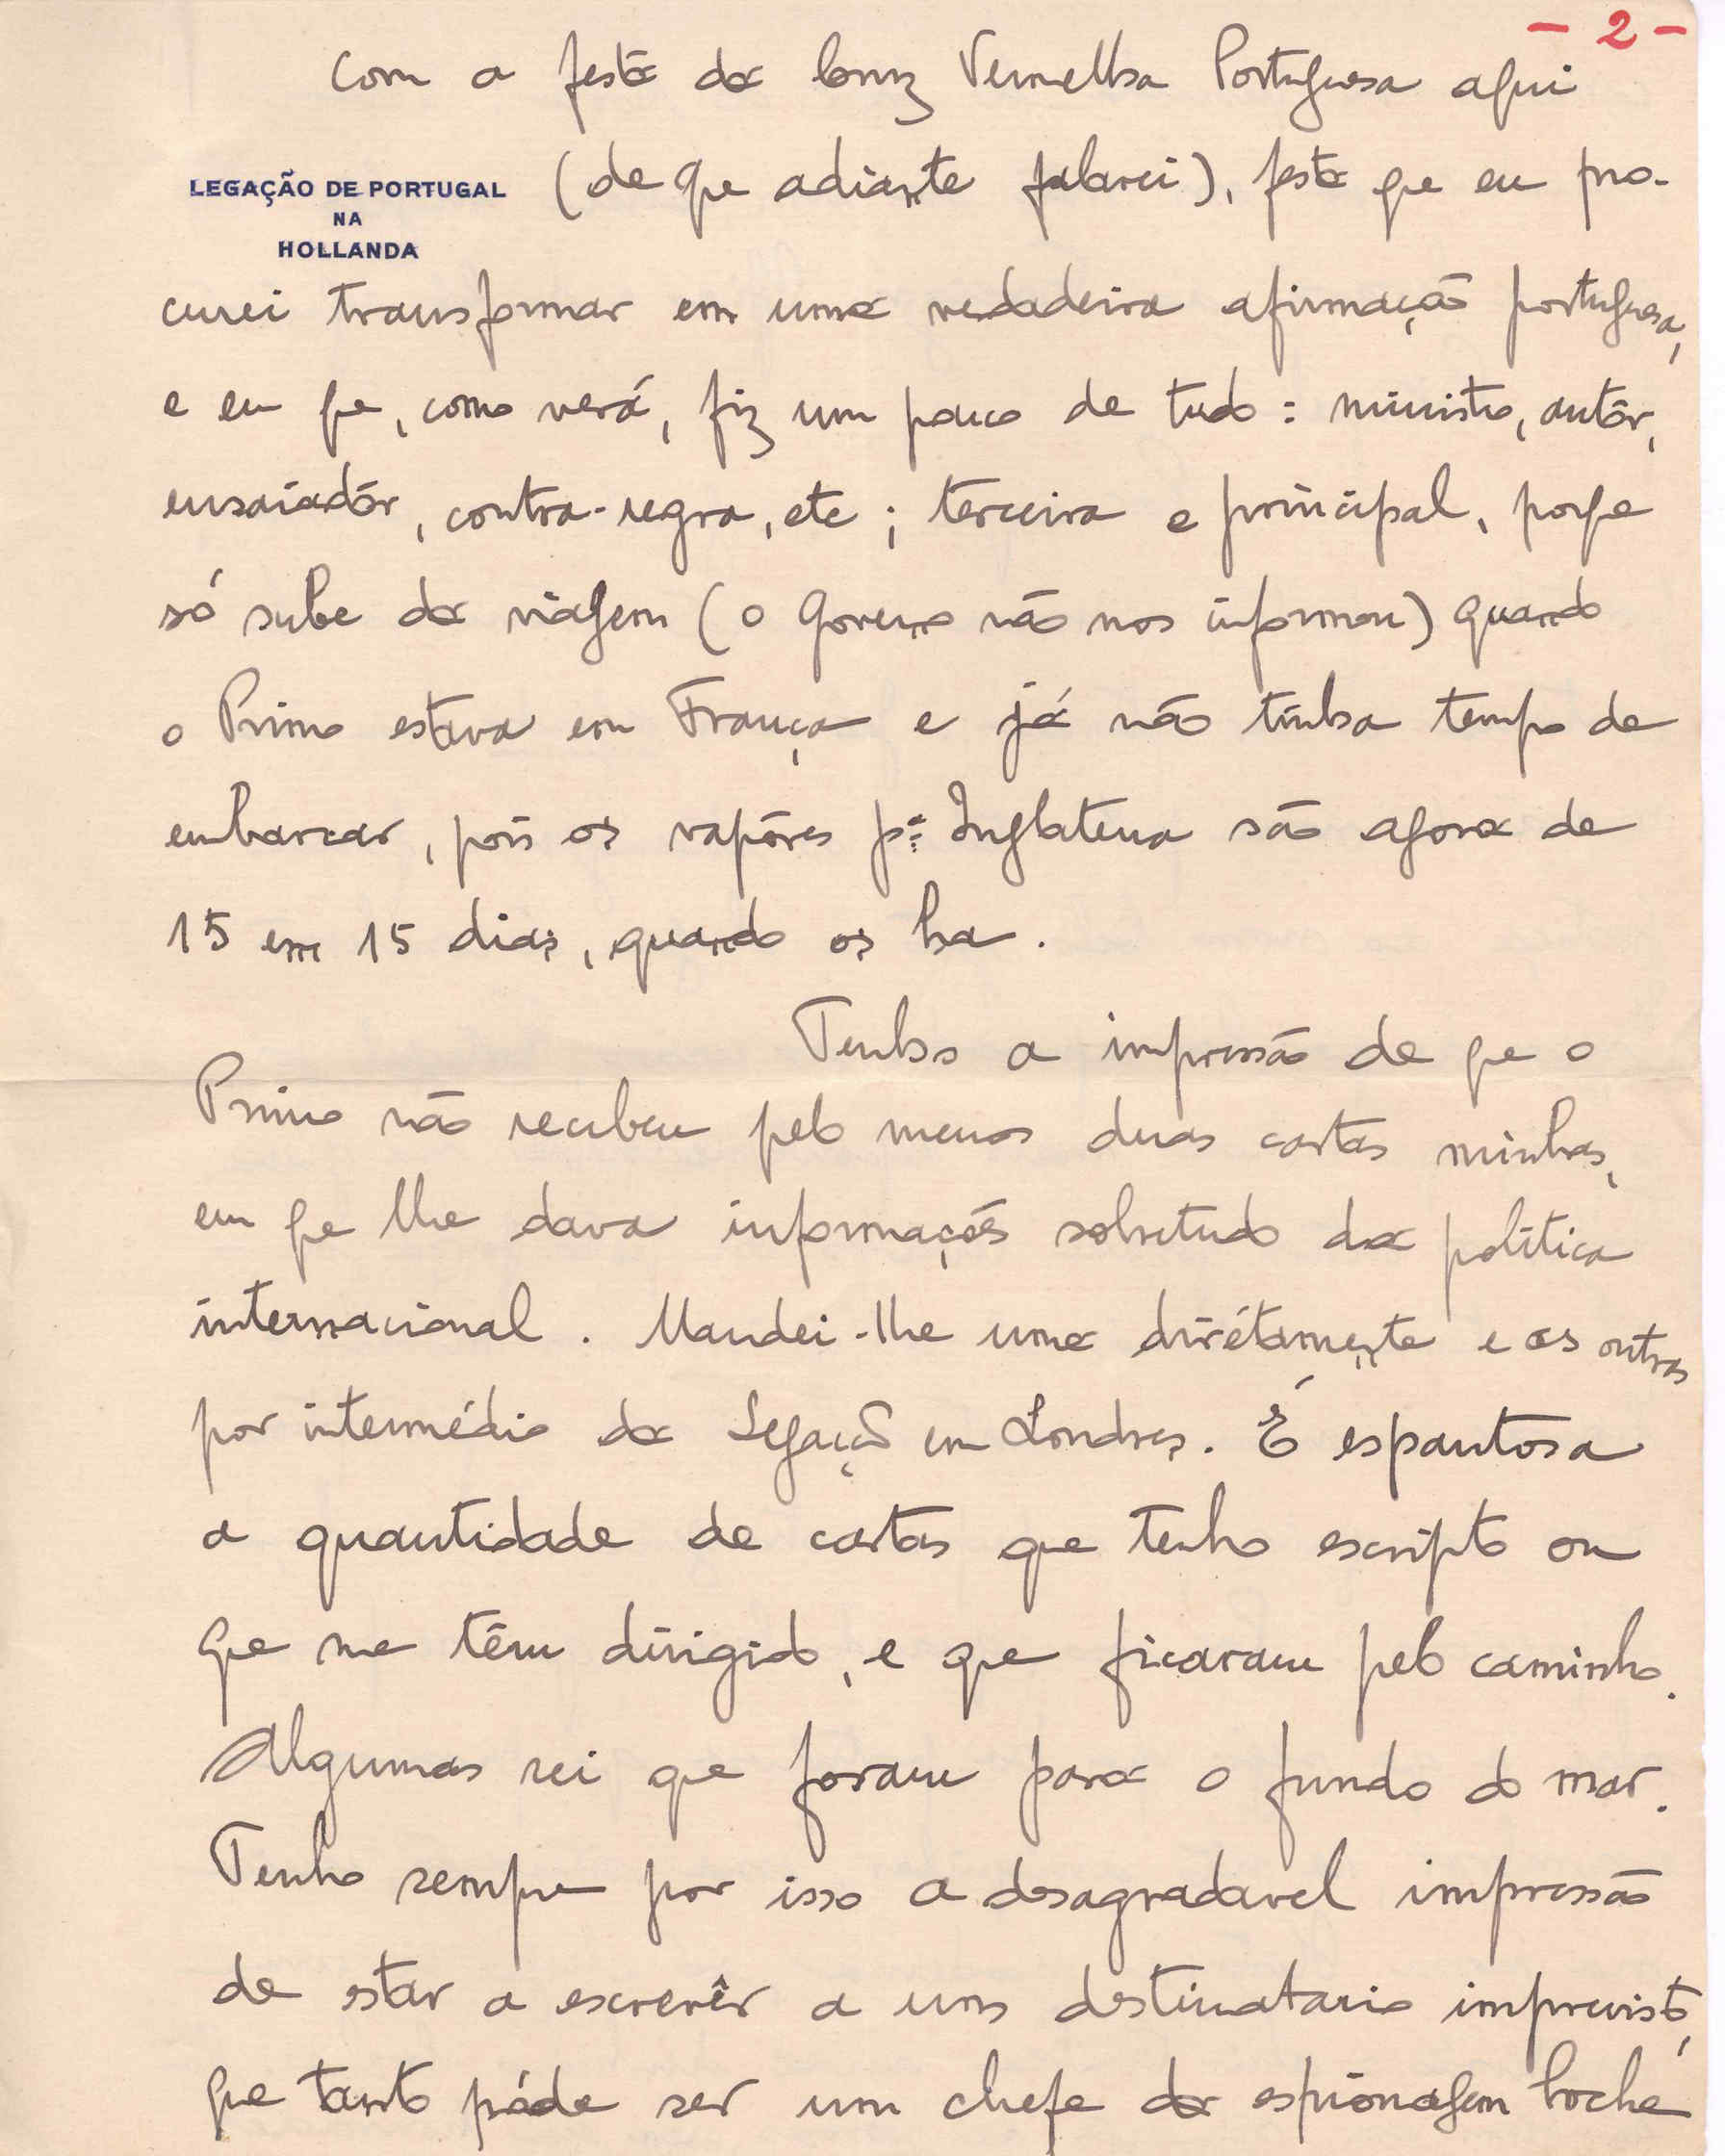 - 2 -
Com a festa da Cruz Vermelha Portuguesa aqui
LEGAÇÃO DE PORTUGAL
NA
HOLLANDA
(de que adiante falarei), festa que eu pro-
curei transformar em uma verdadeira afirmação portuguesa,
e em que, como verá, fiz um pouco de tudo: ministro, autôr,
ensaiadôr, contra-regra, etc; terceira e principal, porque
só sube da viagem (o Governo não nos informou) quando
o Primo estava em França e já não tinha tempo de
embarcar, pois os vapôres pª Inglaterra são agora de
15 em 15 dias, quando os ha.
Tenho a impressão de que o
Primo não recebeu pelo menos duas cartas minhas,
em que lhe dava informações sobretudo da politica
internacional. Mandei-lhe uma dirétamente e as outras
por intermédio da Legação em Londres. É espantosa
a quantidade de cartas que tenho escripto ou
que me têm dirigido, e que ficaram pelo caminho.
Algumas sei que foram para o fundo do mar.
Tenho sempre por isso a desagradavel impressão
de estar a escrevêr a um destinatario imprevisto,
que tanto póde ser um chefe da espionagem boche